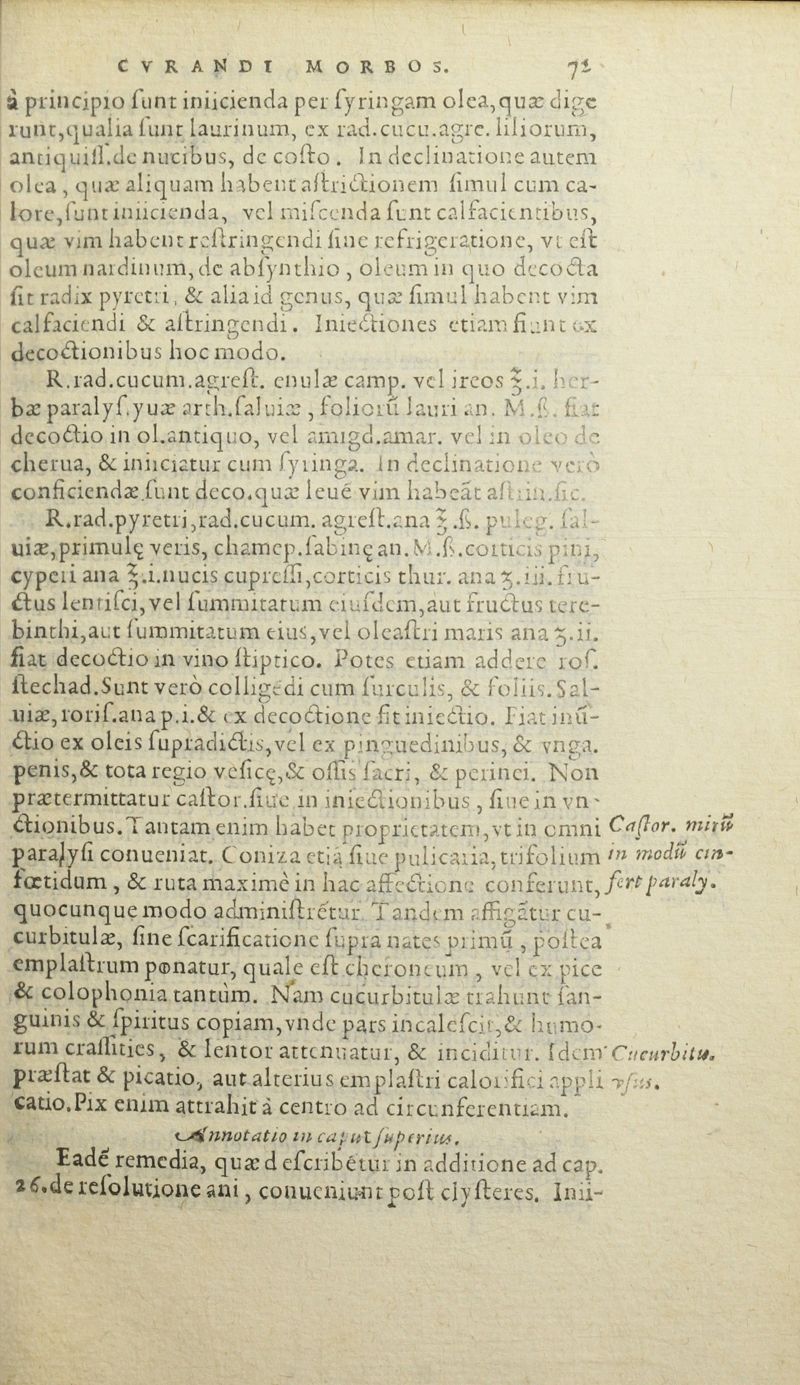 CVRANDI MORBOS. 71
à principio ſunt iniicienda per ſyringam olea,quæ dige
runt,qualia ſunt laurinum, ex rad.cucu.agre. liliorum,
antiquiſſ.de nucibus, de coſto. In declinatione autem
olea, quæ aliquam habent aſtrictionem ſimul cum ca-
lore,ſunt iniicienda, vel miſcenda ſunt calfacientibus,
quæ vim habent reſtringendi ſine refrigeratione, vt eſt
oleum nardinum, de abſynthio, oleum in quo decocta
ſit radix pyretri, & alia id genus, quæ ſimul habent vim
calfaciendi & aſtringendi. Iniectiones etiam fiunt ex
decoctionibus hoc modo.
R.rad.cucum.agreſt. enulæ camp. vel ireos ℥.i. her-
bæ paralyſ.yuæ arth.ſaluiæ, folioru᷈ lauri an. M.ß. fiat
decoctio in ol.antiquo, vel amigd.amar. vel in oleo de
cherua, & iniiciatur cum ſyringa. In declinatione verò
conficiendæ ſunt deco.quæ leue᷈ vim habea᷈t aſtrin.ſic.
R.rad.pyretri,rad.cucum. agreſt.ana ℥.ß. puleg. ſal-
uiæ,primulę veris, chamep.ſabinę an. M.ß.corticis pini,
cyperi ana ℥.i.nucis cupreſſi,corticis thur. ana ʒ.iii.fru-
ctus lentiſci,vel ſummitatum eiuſdem,aut fructus tere-
binthi,aut ſummitatum eius,vel oleaſtri maris ana ʒ.ii.
fiat decoctio in vino ſtiptico. Potes etiam addere roſ.
ſtechad.Sunt verò collige᷈di cum ſurculis, & foliis.Sal-
uiæ,roriſ.ana p.i.& ex decoctione fit iniectio. Fiat inu᷈-
ctio ex oleis ſupradictis,vel ex pinguedinibus, & vnga.
penis,& tota regio veſicę,& oſſis ſacri, & perinei. Non
prætermittatur caſtor.ſiue in iniectionibus, ſiue in vn-
ctionibus.Tantam enim habet proprietatem,vt in omni
Caſtor. miru᷈
paralyſi conueniat. Coniza etia᷈ ſiue pulicaria,trifolium
in modu᷈ con-
fœtidum, & ruta maximè in hac affectione conferunt,
fert paraly.
quocunque modo adminiſtre᷈tur. Tandem affiga᷈tur cu-
curbitulæ, ſine ſcarificatione ſupra nates primu᷈, poſtea
emplaſtrum ponatur, quale eſt cheroneum, vel ex pice
& colophonia tantùm. Nam cucurbitulæ trahunt ſan-
guinis & ſpiritus copiam,vnde pars incaleſcit,& humo-
rum craſſities, & lentor attenuatur, & inciditur. Idem
Cucurbitu.
præſtat & picatio, aut alterius emplaſtri calorifici appli
vſus.
catio.Pix enim attrahit à centro ad circunferentiam.
Annotatio in caput ſuperius.
Eade᷈ remedia, quæ deſcribe᷈tur in additione ad cap.
26.de reſolutione ani, conueniunt poſt clyſteres. Inii-